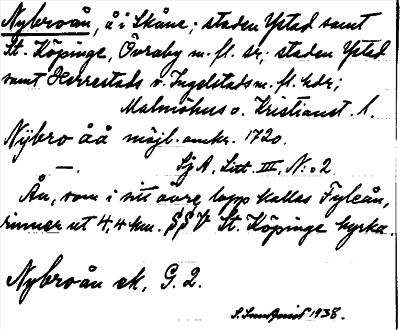 Nybroån, å i Skåne; staden Ystad samt
St. Köpinge, Övraby m. fl. sr; staden Ystad
samt Herrestads o. Ingelstads m. fl. hdr;
Malmöhus o. Kristianst. l.
Nÿbro åå möjl. omkr. 1720.
—. SjA, Litt. III, N:o 2
Ån, som i sitt övre lopp kallas Fyleån,
rinner ut 4,4 km. SSV St. Köpinge kyrka.
Nybroån ek, G. 2.
S. Sundqvist 1938.